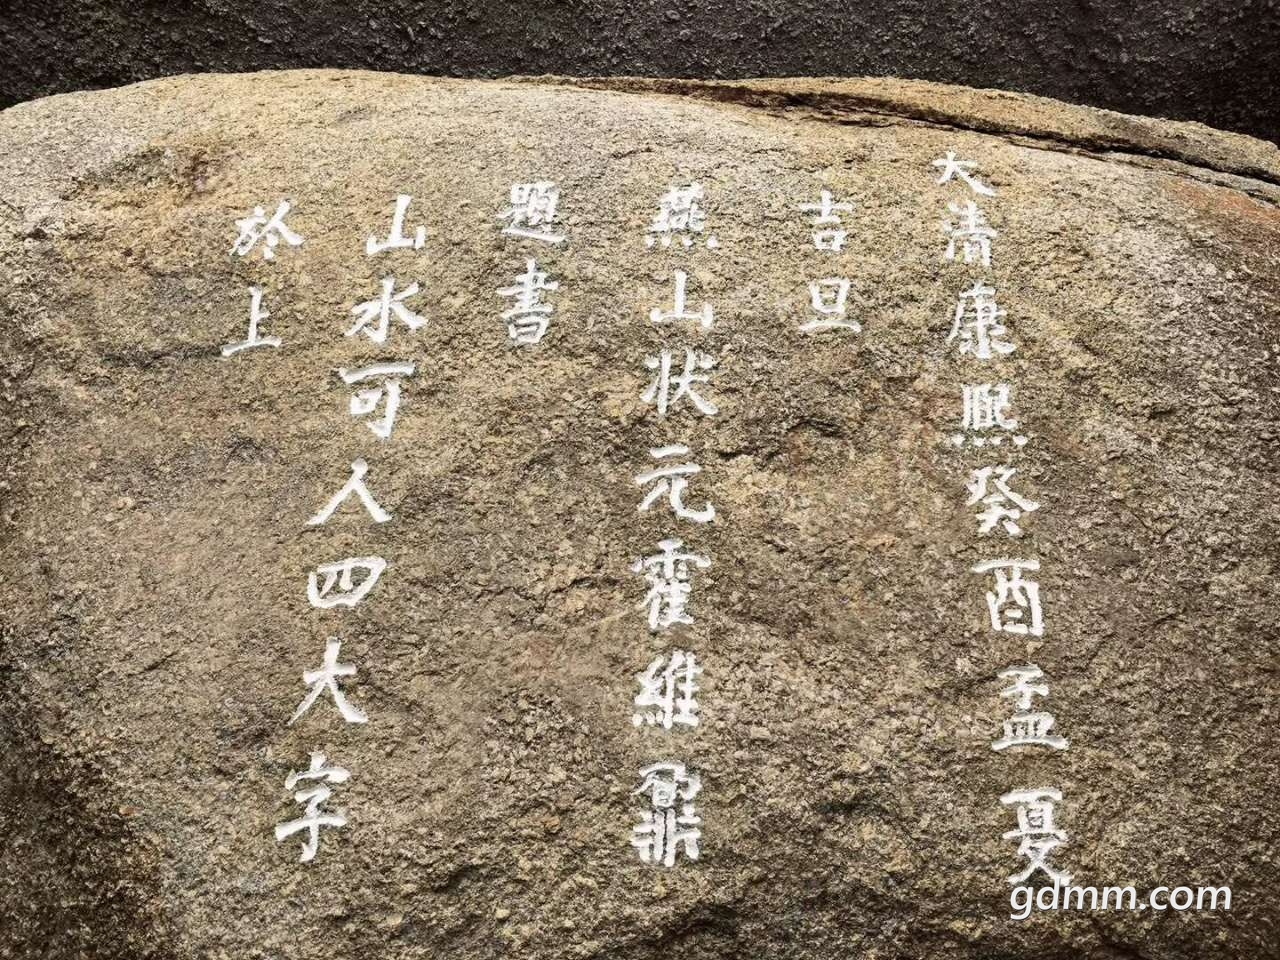 大清康熙癸酉孟夏
吉旦
燕山状元霍維鼐
題書
山水可人四大字
於上
gdmm.com